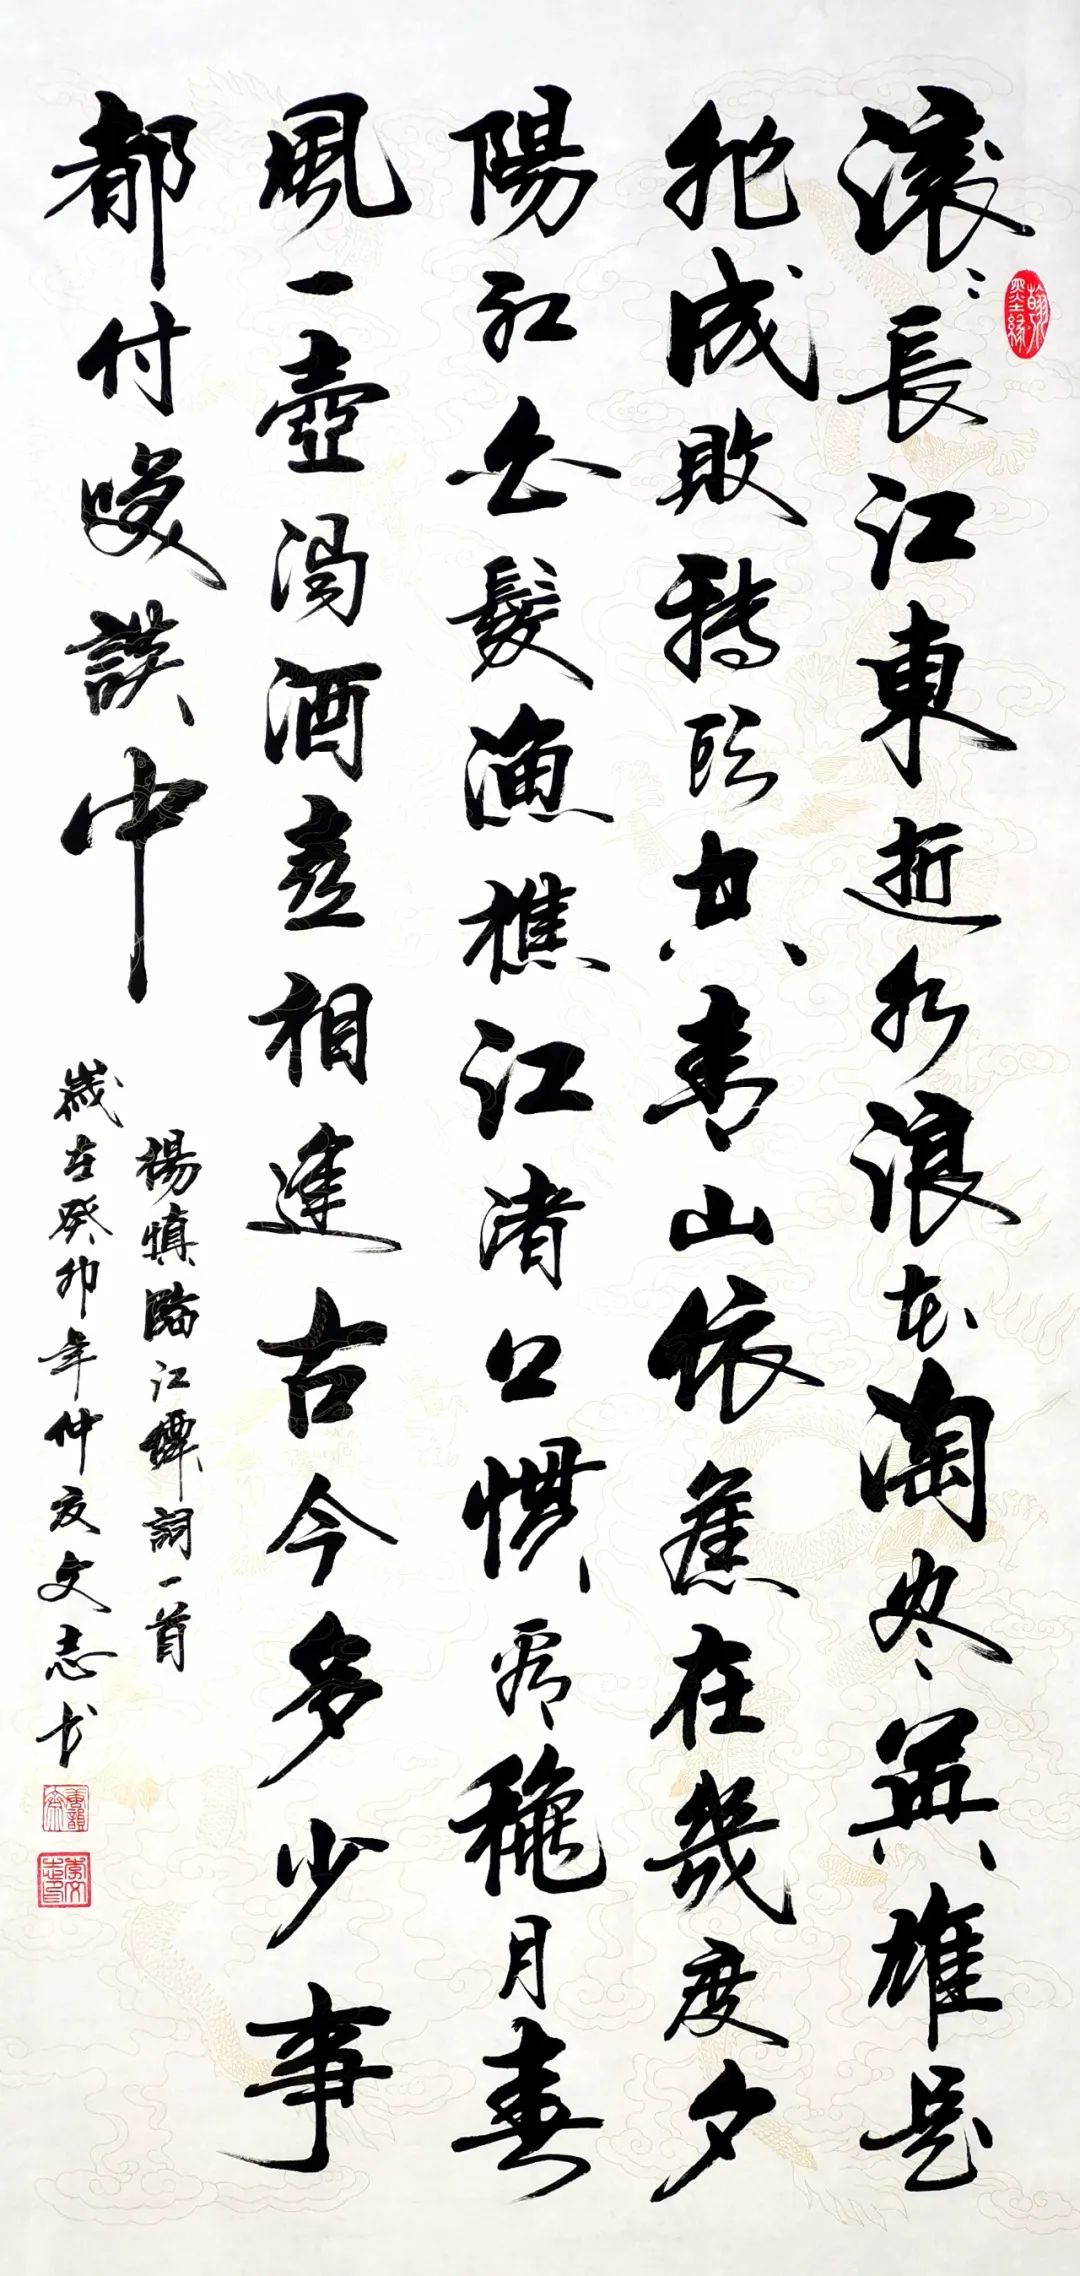 滚〻長江東逝水浪花淘尽英雄是
非成敗轉頭空青山依舊在幾度夕
陽紅白髮漁樵江渚上慣看穐月春
風一壺濁酒喜相逢古今多少事
都付咲談中
楊慎臨江僊詞一首
歲在癸卯年仲夏文志书
翰墨緣